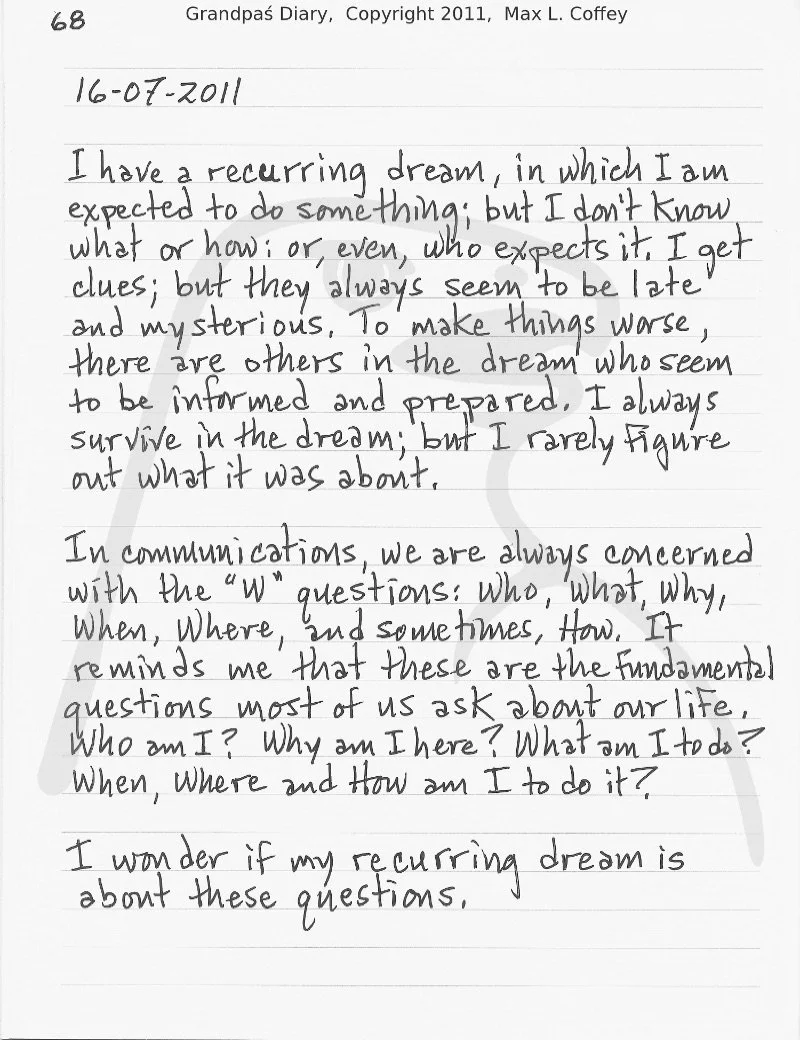 68
Grandpaś Diary, Copyright 2011, Max L. Coffey
16-07-2011
I have a recurring dream, in which I am
expected to do something; but I don't know
what or how; or, even, who expects it. I get
clues; but they always seem to be late
and mysterious. To make things worse,
there are others in the dream who seem
to be informed and prepared. I always
survive in the dream; but I rarely figure
out what it was about.
In communications, we are always concerned
with the "W" questions: Who, What, Why,
When, Where, and sometimes, How. It
reminds me that these are the fundamental
questions most of us ask about our life.
Who am I? Why am I here? What am I to do?
When, Where and How am I to do it?
I wonder if my recurring dream is
about these questions.